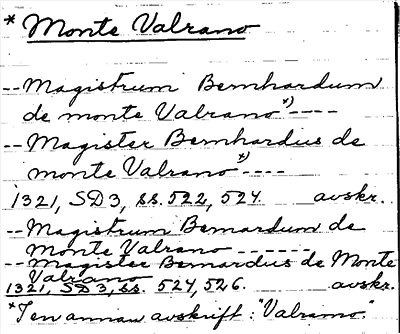 * Monte Valrano
-- Magistrum Bernhardum
de monte Valrano *) ----
-- Magister Bernhardus de
monte Valrano *) ----
1321, SD3, ss. 522, 524. avskr.
-- Magistrum Bernardum de
Monte Valrano ------
-- Magister Bernardus de Monte
Valrano
1321, SD3, ss. 524, 526. avskr.
* I en annan avskrift: "Valramo".